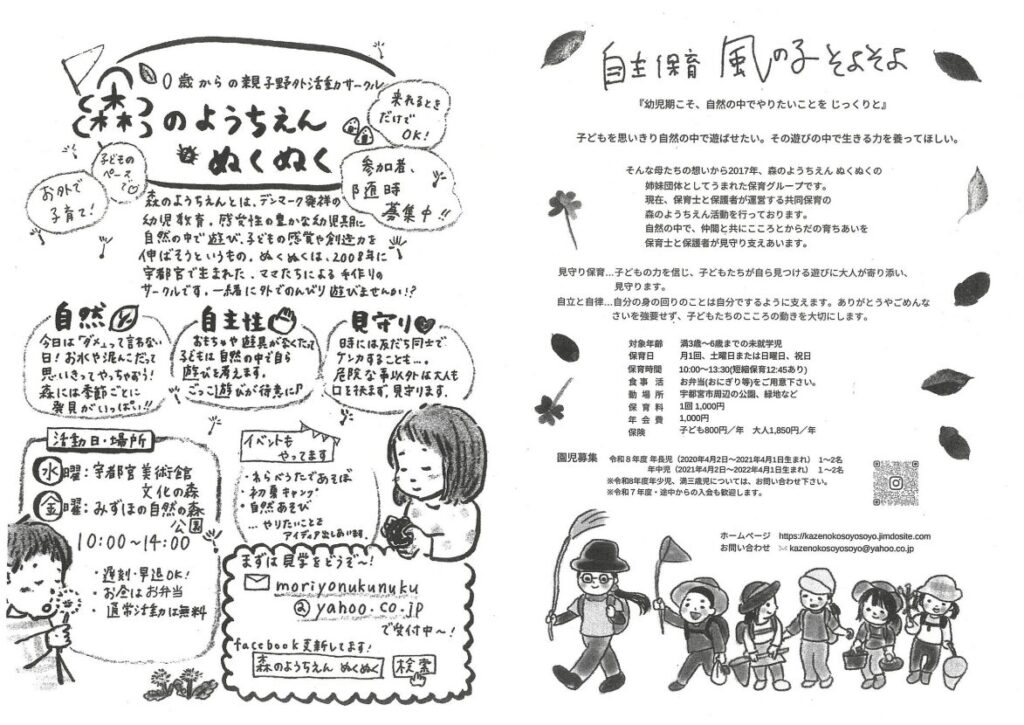 0歳からの親子野外活動サークル
森のようちえん
ぬくぬく
来れるとき
だけで
OK!
子どもの
ペースで
お外で
子育て!
参加者、
随時
募集中!!
森のようちえんとは、デンマーク発祥の
幼児教育。感受性の豊かな幼児期に
自然の中で遊び、子どもの感覚や創造力を
伸ばそうというもの。ぬくぬくは、2008年に
宇都宮で生まれた、ママたちによる手作りの
サークルです。一緒に外でのんびり遊びませんか!?
自然
今日は「ダメ」って言わない
日!お水や泥んこだって
思いきってやっちゃおう!
森には季節ごとに
発見がいっぱい!!
自主性
おもちゃや遊具がなくたって
子どもは自然の中で自ら
遊びを考えます。
ごっこ遊びが得意に♪
見守り
時には友だち同士で
ケンカすることも…。
危険な事以外は大人も
口を挟まず、見守ります。
活動日・場所
水曜:宇都宮美術館
文化の森
金曜:みずほの自然の森
公園
10:00~14:00
・遅刻・早退OK!
・お昼はお弁当
・通常活動は無料
イベントも
やってます
・わらべうたであそぼ
・初夏キャンプ
・自然あそび
…やりたいことを
アイディア出しあいます。
まずは見学をどうぞ~!
moriyonukunuku
@yahoo.co.jp
で受付中~!
facebook更新してます!
森のようちえん ぬくぬく 検索
自主保育 風の子そよそよ
『幼児期こそ、自然の中でやりたいことを じっくりと』
子どもを思いきり自然の中で遊ばせたい。その遊びの中で生きる力を養ってほしい。
そんな母たちの想いから2017年、森のようちえん ぬくぬくの
姉妹団体としてうまれた保育グループです。
現在、保育士と保護者が運営する共同保育の
森のようちえん活動を行っております。
自然の中で、仲間と共にこころとからだの育ちあいを
保育士と保護者が見守り支えあいます。
見守り保育…子どもの力を信じ、子どもたちが自ら見つける遊びに大人が寄り添い、
見守ります。
自立と自律…自分の身の回りのことは自分でするように支えます。ありがとうやごめんな
さいを強要せず、子どもたちのこころの動きを大切にします。
対象年齢 満3歳~6歳までの未就学児
保育日 月1回、土曜日または日曜日、祝日
保育時間 10:00~13:30(短縮保育12:45あり)
食事 活 お弁当(おにぎり等)をご用意下さい。
動場所 宇都宮市周辺の公園、緑地など
保育料 1回 1,000円
年会費 1,000円
保険 子ども800円/年 大人1,850円/年
園児募集 令和8年度 年長児(2020年4月2日~2021年4月1日生まれ) 1~2名
年中児(2021年4月2日~2022年4月1日生まれ) 1~2名
※令和8年度年少児、満三歳児については、お問い合わせ下さい。
※令和7年度・途中からの入会も歓迎します。
ホームページ https://kazenokosoyosoyo.jimdosite.com
お問い合わせ kazenokosoyosoyo@yahoo.co.jp